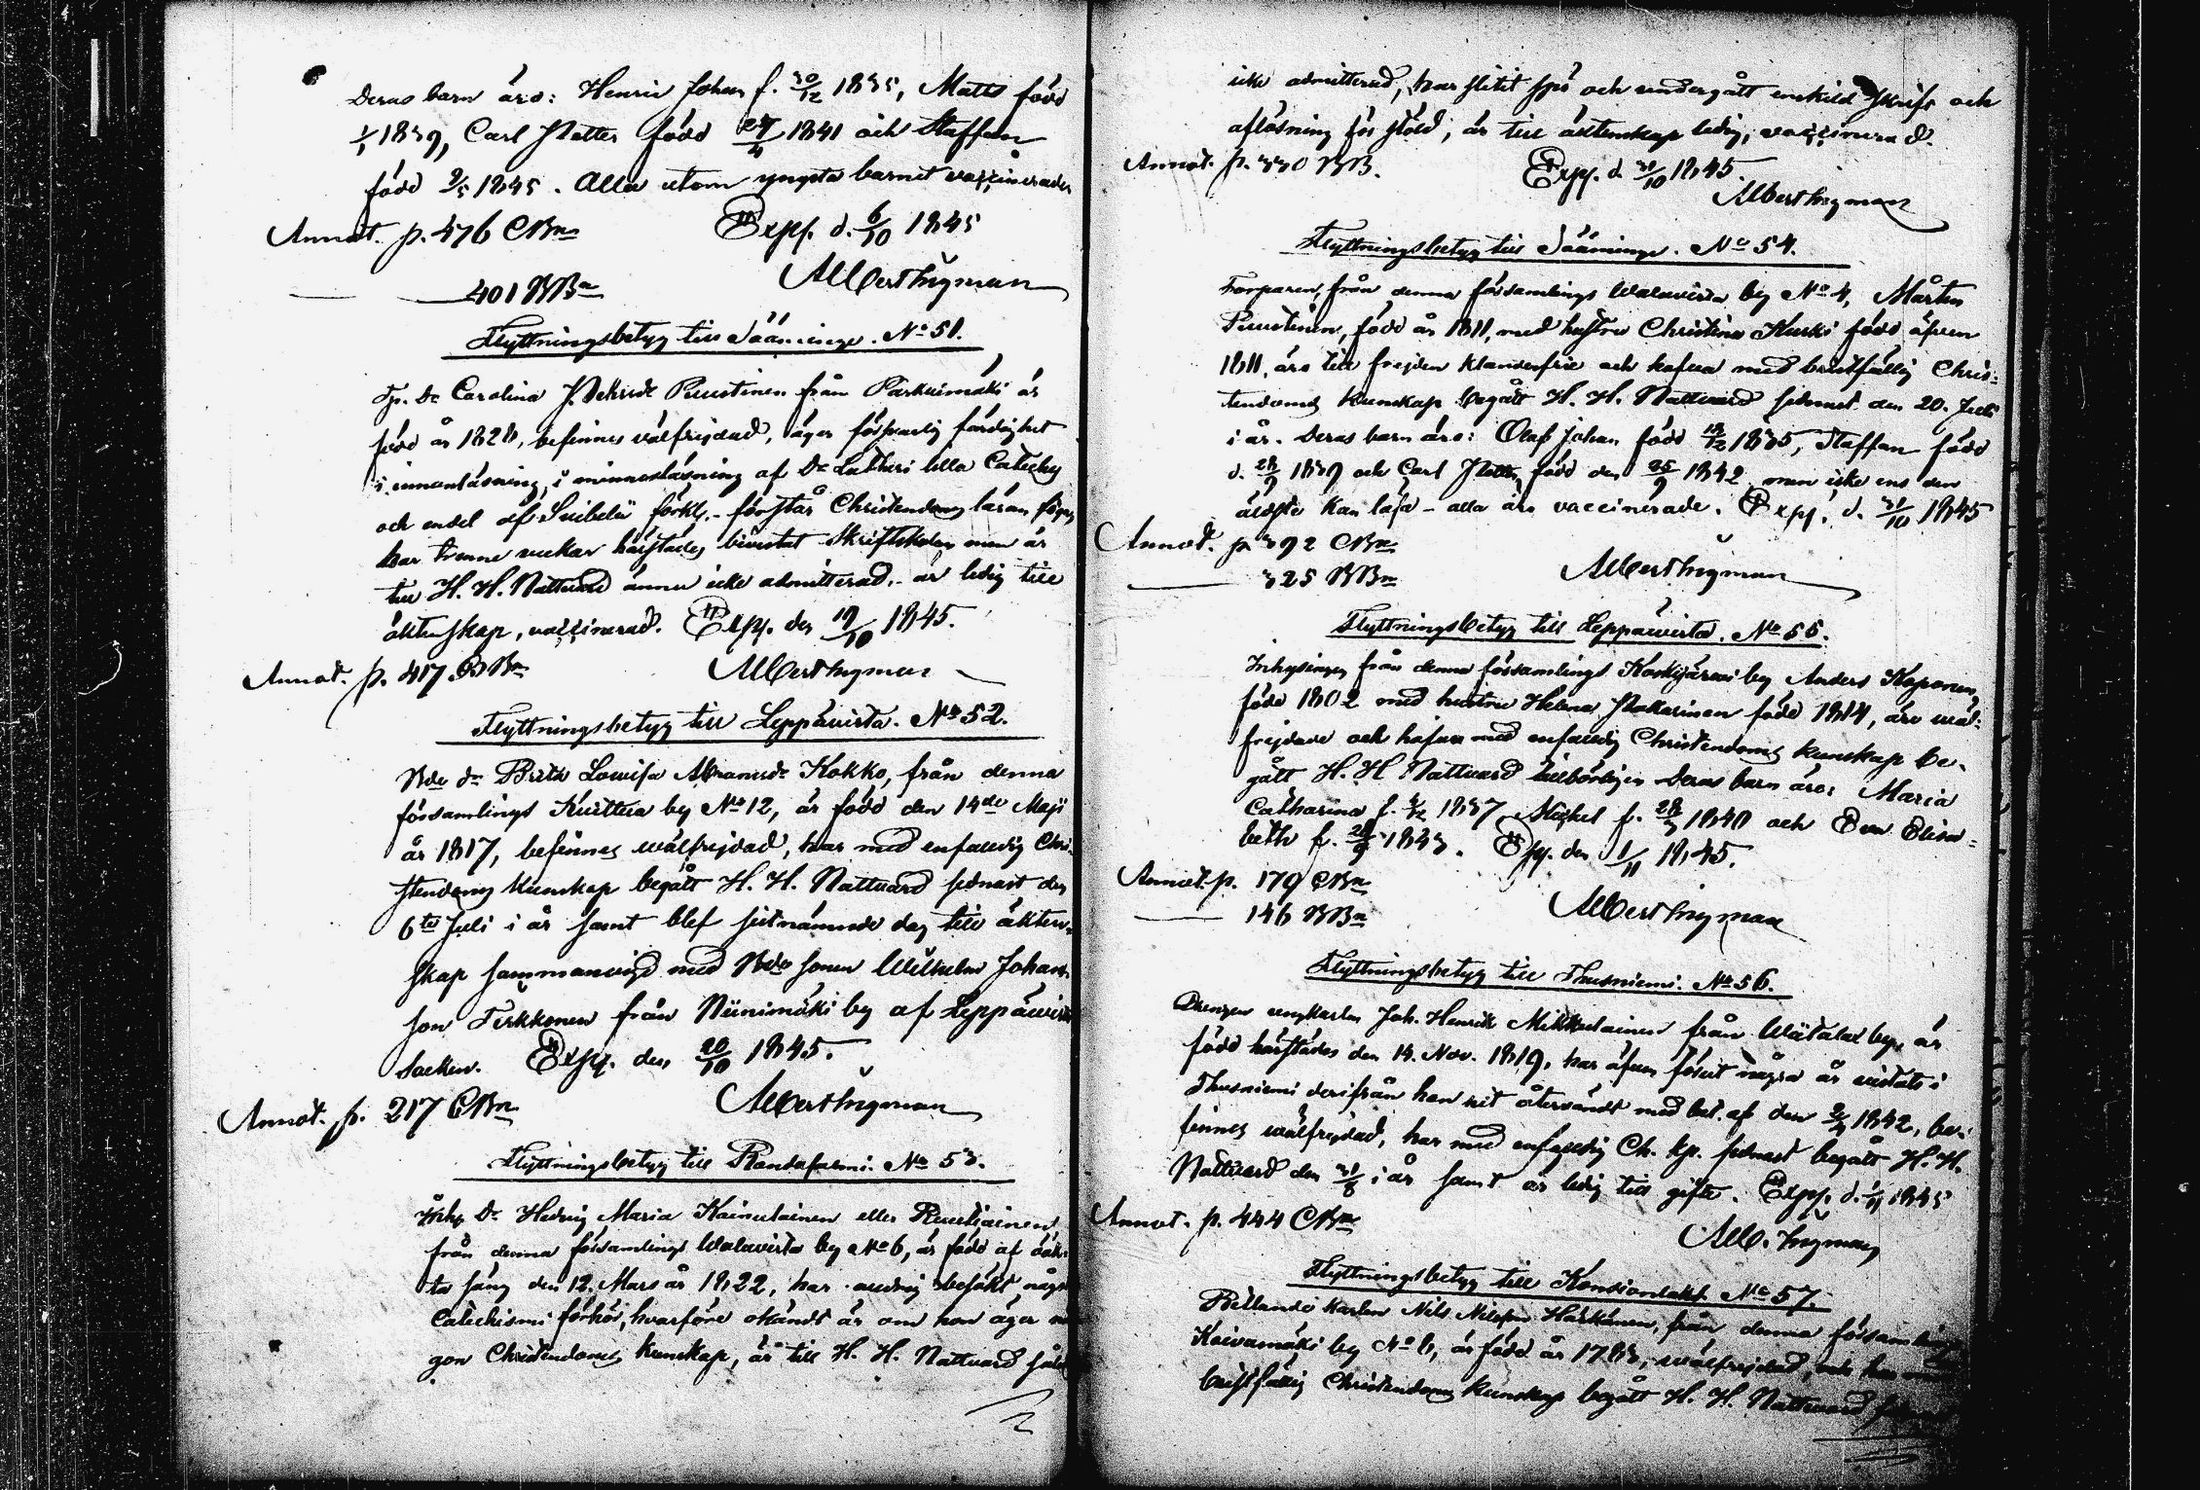 Deras barn äro: Henric Johan f. 30/12 1835, Matts född
1/1 1839, Carl Petter född 24/4 1841 och Staffan
född 2/5 1845. Alla utom yngsta barnet vaccinerade
Annot. p. 476 CBn Exp. d. 6/10 1845
401 BBn Alb ert Ingman
Flyttningsbetyg till Sääminge. No 51.
Tp. Dr Carolina P. dr Puustinen från Parkuimäki är
född år 1828, befinnes välfrejdad, äger försvarlig färdighet
i innanläsning, i minnesläsning af Dr Lutheri lilla Cateches
och endel af Svibelii förkl. - förstår Christendoms läran
har trenne veckor härstädes bivistat Skriftskolan men är
till H. H. Nattvard ännu icke admitterad, - är ledig till
äktenskap, vaccinerad. Exp. den 19/10 1845.
Annot. p. 417 BBn Albert Ingman
Flyttningsbetyg till Leppävirta. No 52.
Bde dr Brita Lowisa Abramsdr Kokko, från denna
församlings Kurttua by No 12, är född den 14de Maji
år 1817, befinnes wälfrejdad, har med enfaldig Chri-
stendoms kunskap begått H. H. Nattvard sednast den
6te Juli i år samt blef sistnämnde dag till äkten-
skap sammanvigd med Bde sonen Wilhelm Johans-
son Tirkkonen från Niinimäki by af Leppävirta
Socken. Exp. den 20/10 1845.
Annot. p. 217 CBn Albert Ingman
Flyttningsbetyg till Randasalmi. No 53.
Inhys Dr Hedvig Maria Kainulainen eller
från denna församlings Walavirta by No 6, är född af oäk-
ta säng den 12. Mars år 1822, har aldrig besökt någo
Catechismi förhör, hvarföre okändt är om hon äger nå
gon Christendoms kunskap, är till H. H. Nattvard
icke admitterad, har slitit spö och undergått enskild skrift och
aflösning för stöld, är till äktenskap ledig, vaccinerad.
Annot. p. 330 BB. Exp. d. 31/10 1845.
Albert Ingman
Flyttningsbetyg till Sääminge. No 54.
Torparen, från denna församlings Walavirta by No 4, Mårten
Puustinen, född år 1811, med hustru Christina Kurki född äfven
1811, äro till frejden klanderfrie och hafva med bristfällig Chris-
tendoms kunskap begått H. H. Nattvard sednast den 20. Juli
i år. Deras barn äro: Olof Johan född 18/12 1835, Staffan född
d. 28/9 1839 och Carl Petter, född den 25/9 1842, men icke ens den
äldste kan läsa - alla äro vaccinerade. Exp. d. 31/10 1845
Annot. p. 392 CBn
325 BBn Albert Ingman
Flyttningsbetyg till Leppävirta. No 55.
Inhysingen från denna församlings Koskijärvi by Anders Kaponen,
född 1802 med hustru Helena Pakarinen född 1814, äro wäl-
frejdade och hafva med enfaldig Christendoms kunskap be-
gått H. H. Nattvard Deras barn äro: Maria
Catharina f. 1837, Michel f. 1840 och Eva Elisa-
beth f. 1843. Exp. den 1/11 1845.
Annot. p. 179 CBn
146 BBn Albert Ingman
Flyttningsbetyg till Thusniemi. No 56.
Drengen ungkarlen Joh. Henrik Mikkulainen från by, är
född härstädes den 14. Nov. 1819, har äfven förut några år vistats i
Thusniemi derifrån han hit återvändt med bet. af den 1842, be-
finnes wälfrejdad, har med enfaldig Ch. kp. sednast begått H. H.
Nattvard den 31/8 i år samt är ledig till gifte. Exp. d. 1/11 1845
Annot. p. 444 CBn
Alb. Ingman
Flyttningsbetyg till No 57.
karlen Nils Nilsson från denna församlings
Koivumäki by No 6, är född år 1783, wälfrejdad, och har med
bristfällig Christendoms kunskap begått H. H. Nattvard